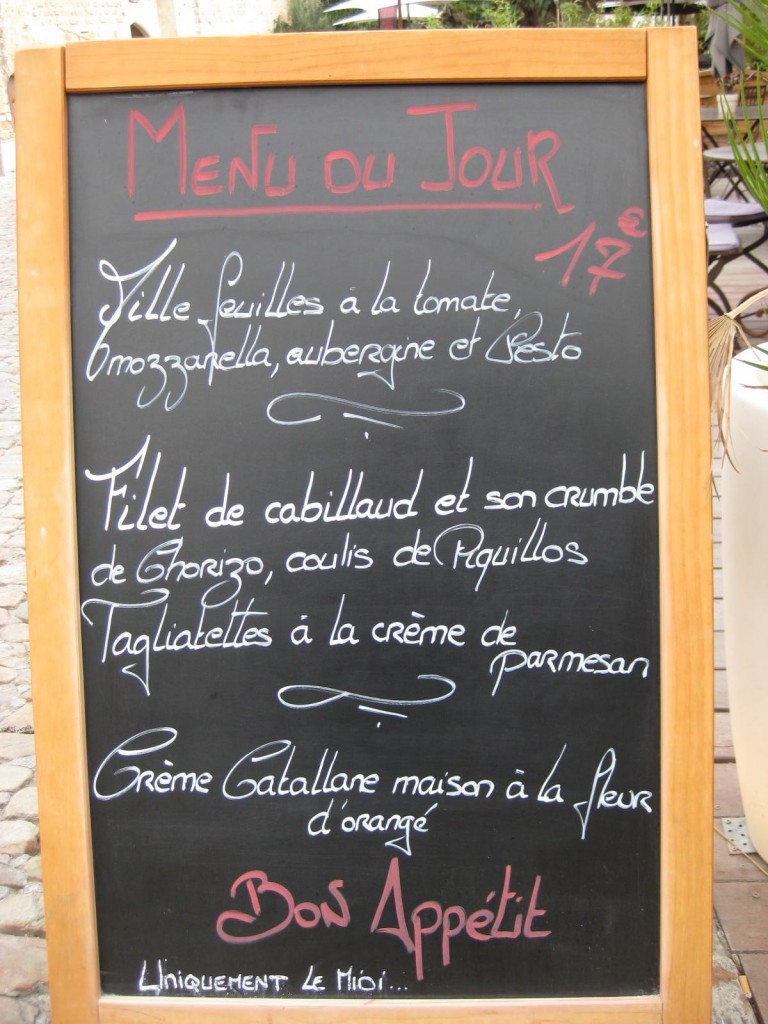 Menu du Jour
17€
Mille feuilles à la tomate,
mozzarella, aubergine et Pesto
Filet de cabillaud et son crumble
de Chorizo, coulis de Piquillos
Tagliatelles à la crème de
parmesan
Crème Catallane maison à la fleur
d'orangé
Bon Appétit
Uniquement Le Midi...